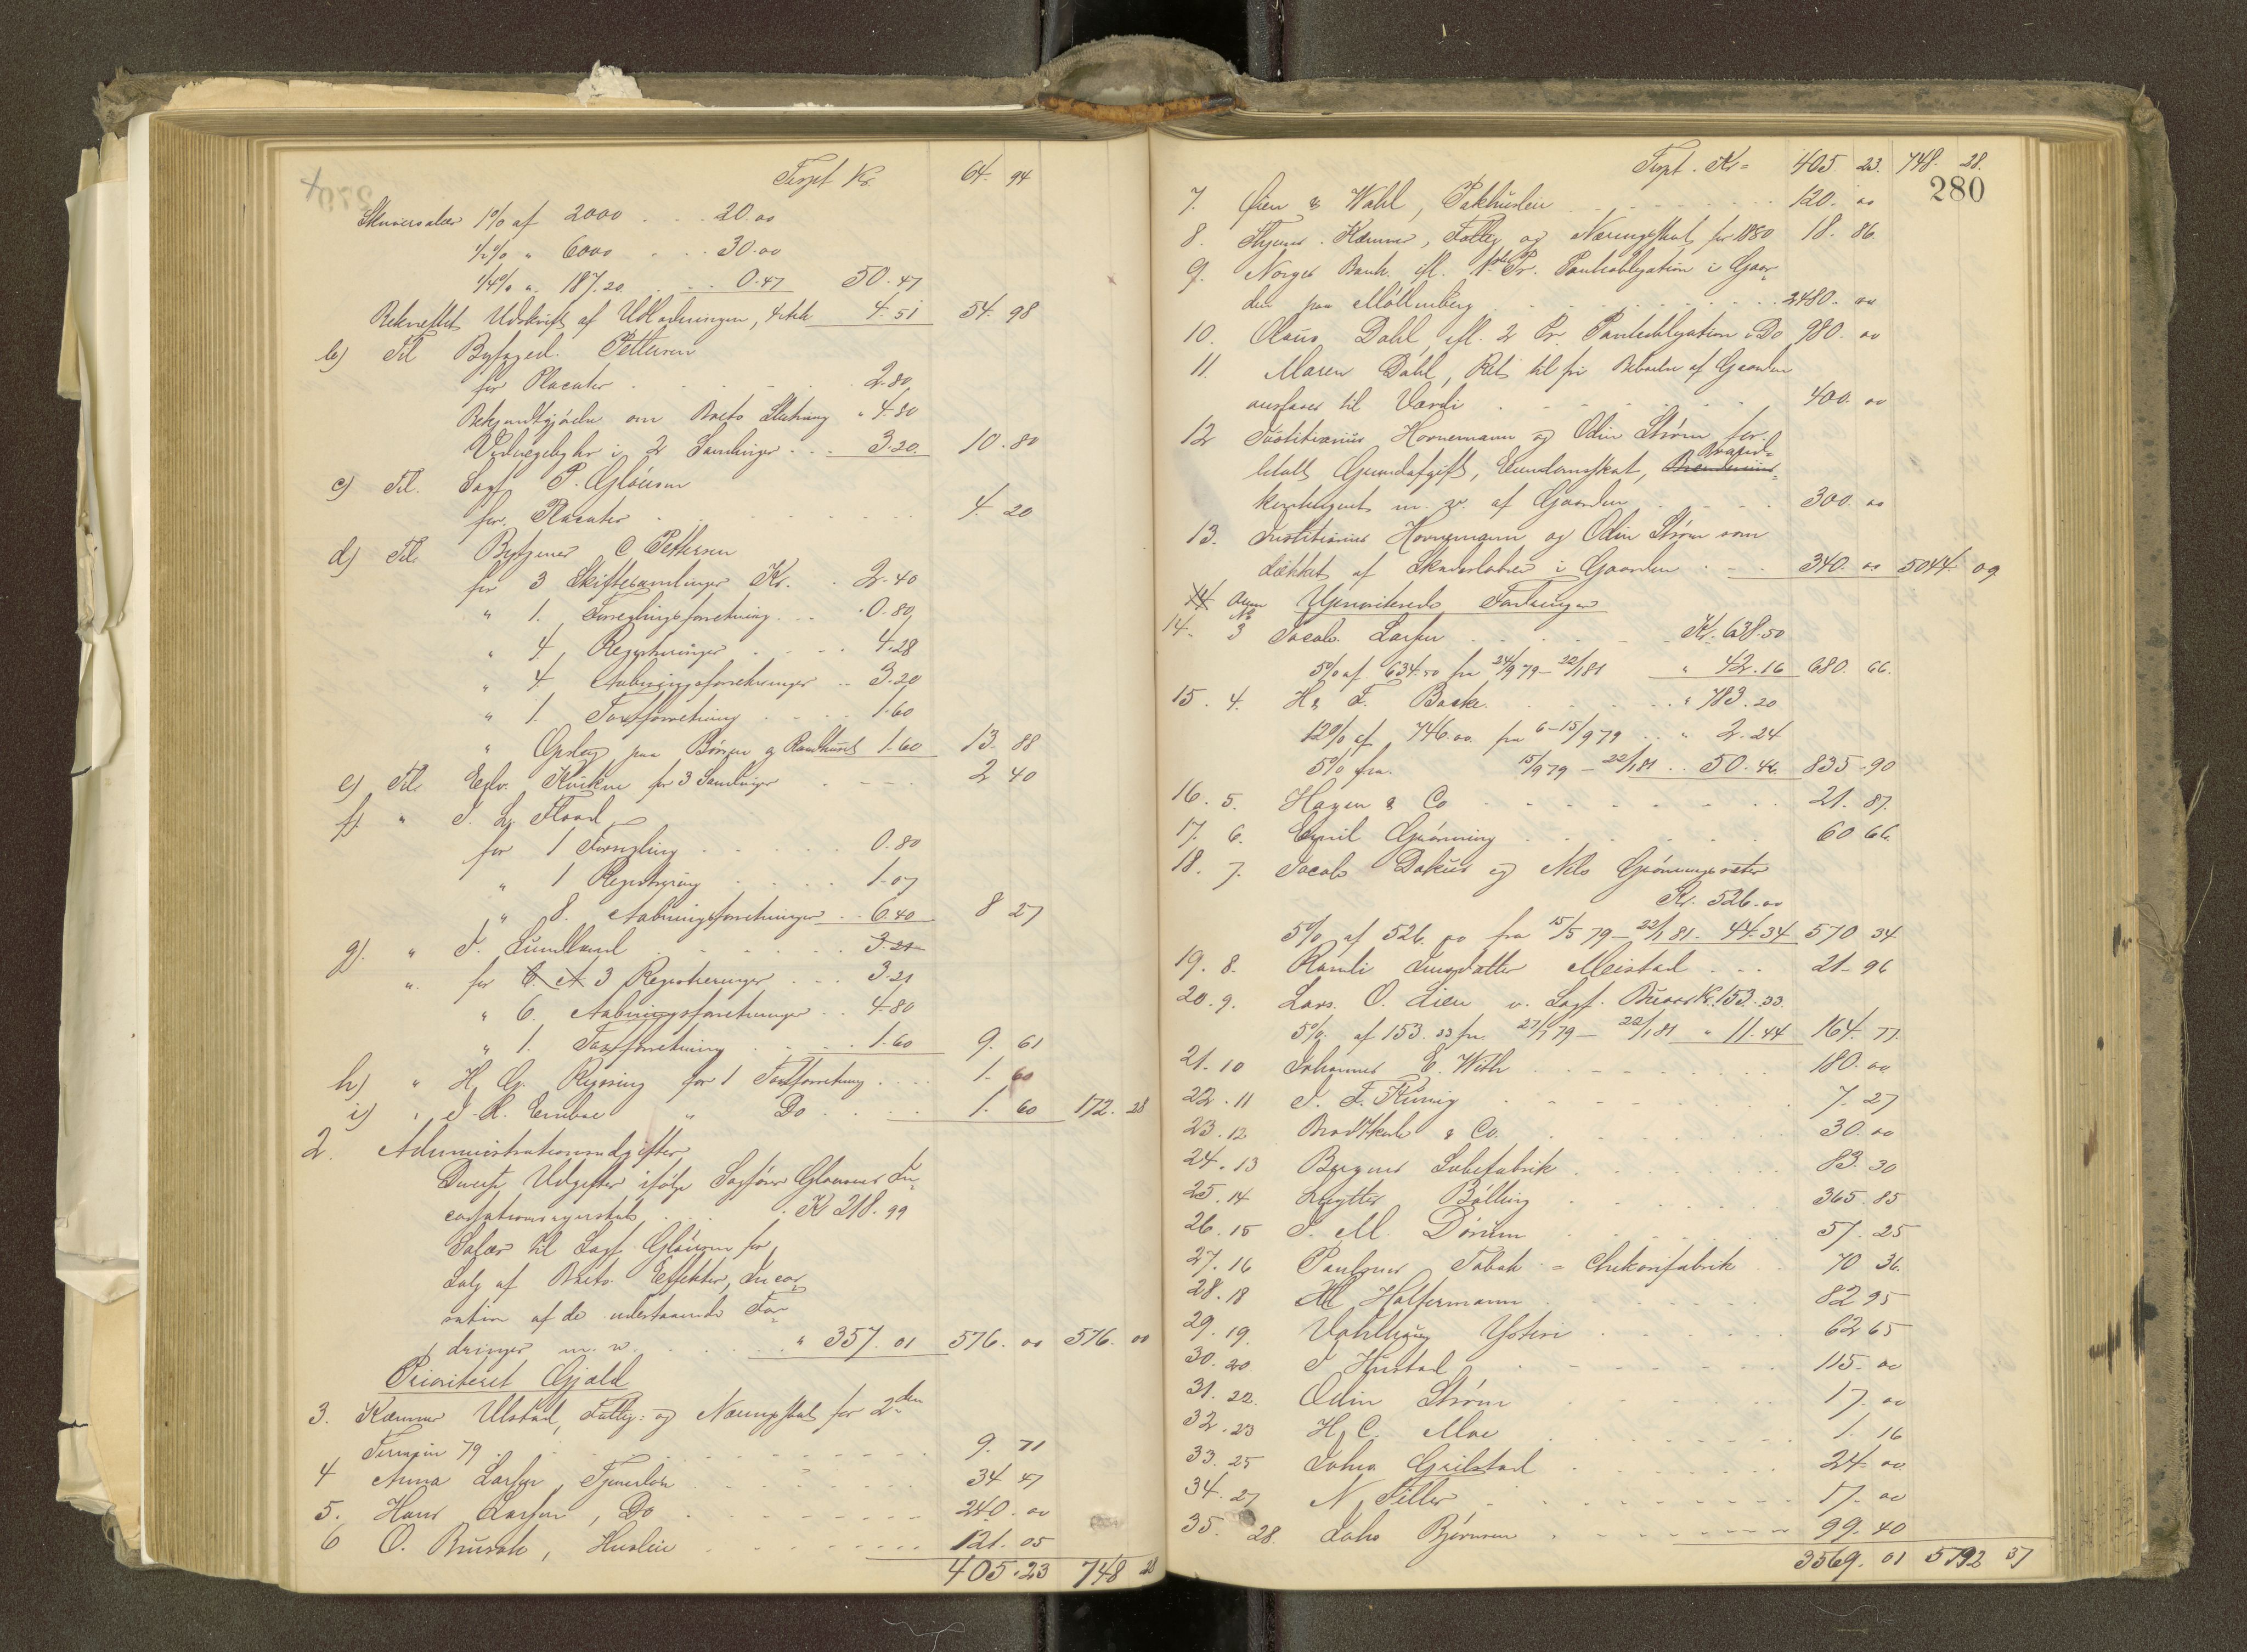 Trspt Kr. 64. 94
Skiversalær 1% af 2000 . . . 20.00
1/2% " 6000 . . . 30.00
1/4% " 187.20 . . . 0.47 50.47
Rekvireret Udskrift af Udlodningen, 4.51 54. 98
b) Til Bytgzed. Pettersen
for Placater . . . 2.80
Bekjendtgjørelse om Boets Slutning " 4.80
i 2 Samlinger . . . 3.20. 10. 80
c) Til Sagf. P. Gløersen
for Placater . . . 4. 20
d) Til C Pettersen
for 3 Skiftesamlinger Kr. . 2.40
" 1. Forseglingsforretning . . . 0.80
" 4 Registreringer . . . 4.28
" 4 Aabningsforretninger . . 3.20
" 1. Taxtforretning . . . 1.60
" Opslag paa Børsen og Raadhuset 1.60 13. 88
e) Til Kvikne for 3 Samlinger . . . 2 40
f) " I. L. Flood
for 1 Forsegling . . . 0.80
" 1 Registrering . . . 1.07
" 8. Aabningsforretninger . . 6.40 8 27
g) " F. Lundlund . . . 3.21
" for 3 Registreringer . . . 3.21
" 6. Aabningsforretninger . . 4.80
" 1. Taxtforretning . . . 1.60 9. 61
h) " H. G. for 1 Taxtforretning . . . 1. 60
i) " Do . . . 1. 60 172. 28
2. Administrationsudgifter
Diverse Udgifter ifølge Sagfører Gløersens In-
cassationsregnskab . . . Kr 218.99
Salær til Sagf. Gløersen for
Salg af Boets Effekter, Incas-
sation af de udestaaende For-
dringer m. v. . . . " 357.01 576. 00 576. 00
Prioriteret Gjæld
3. Kæmner Ulstad, Fattig- og Næringsskat for 2den
Termin 79 . . . 9. 71
4 Anna Larsen, Tjenerløn . . . 34 47
5. Hans Larsen, Do . . . 240. 00
6 O. Brusak, Husleie . . . 121. 05
405.23 748 28
280
Trspt. Kr= 405. 23. 748. 28.
7. Øien & Wahl, Pakhusleie . . . 120. 00
8. Kæmner, Fattig og Næringsskat for 1880 18. 86
9. Norges Bank ifl. 1ste Pr. Panteobligation i Gaar-
den paa Møllenberg . . . 2480. 00
10. Olaus Dahl, ifl. 2 Pr. Panteobligation i Do 980. 00
11. Maren Dahl, Ret til fri Beboelse af Gaarden
ansføres til Værdi . . . 400. 00
12 Justitiarius Hornemann og Odin Strøm for-
Brand-
Grundafgift, Eiendomsskat,
kontingent m. v. af Gaarden . . . 300. 00
13. Justitiarius Hornemann og Odin Strøm som
af Skadesløsbrev i Gaarden . . . 340. 00 5044. 09
Uprioriterede Fordringer
14. No 3 Jacob Larsen . . . Kr. 638.50
5% af 634.50 fra 24/9 79 - 22/1 81 " 42.16 680. 66.
15. 4. H. F. Baske . . . " 783.20
12% af 746.00 fra 6-15/9 79 . . " 2.24
5% fra 15/9 79 - 22/1 81 . . 50.46 835.90
16. 5. Hagen & Co . . . 21. 87.
17. 6. Emil Grønning . . . 60 66.
18. 7. Jacob Dakus og Nils Grønningsæter
Kr. 526.00
5% af 526.00 fra 15/5 79 - 22/1 81. 44.34 570 34
19. 8. Meistad . . . 21. 96
20. 9. Lars O. Lien v. Sagf. Kr. 153.33
5% af 153.33 fra 27/7 79 - 22/1 81 " 11.44 164. 77.
21. 10 Johannes E. With . . . 180. 00
22. 11 I. F. König . . . 7. 27
23. 12 & Co. . . . 30. 00
24. 13 Bergens Sæbefabrik . . . 83. 30
25. 14 Bølling . . . 365. 85
26. 15 I. M. Dørum . . . 57. 25
27. 16 Paulsens Tobak- Chikorifabrik . . 70 36.
28. 18 Haltermann . . . 82 95
29. 19. Ysteri . . . 62 65
30. 20 I Hustad . . . 115. 00
31. 22. Odin Strøm . . . 17. 00
32. 23 H. C. Moe . . . 1. 16
33. 25 Johs Grilstad . . . 24 00
34. 27 N. Tiller . . . 17. 00
35. 28. Johs Bjørnsen . . . 99. 40
3569. 01 5792 37